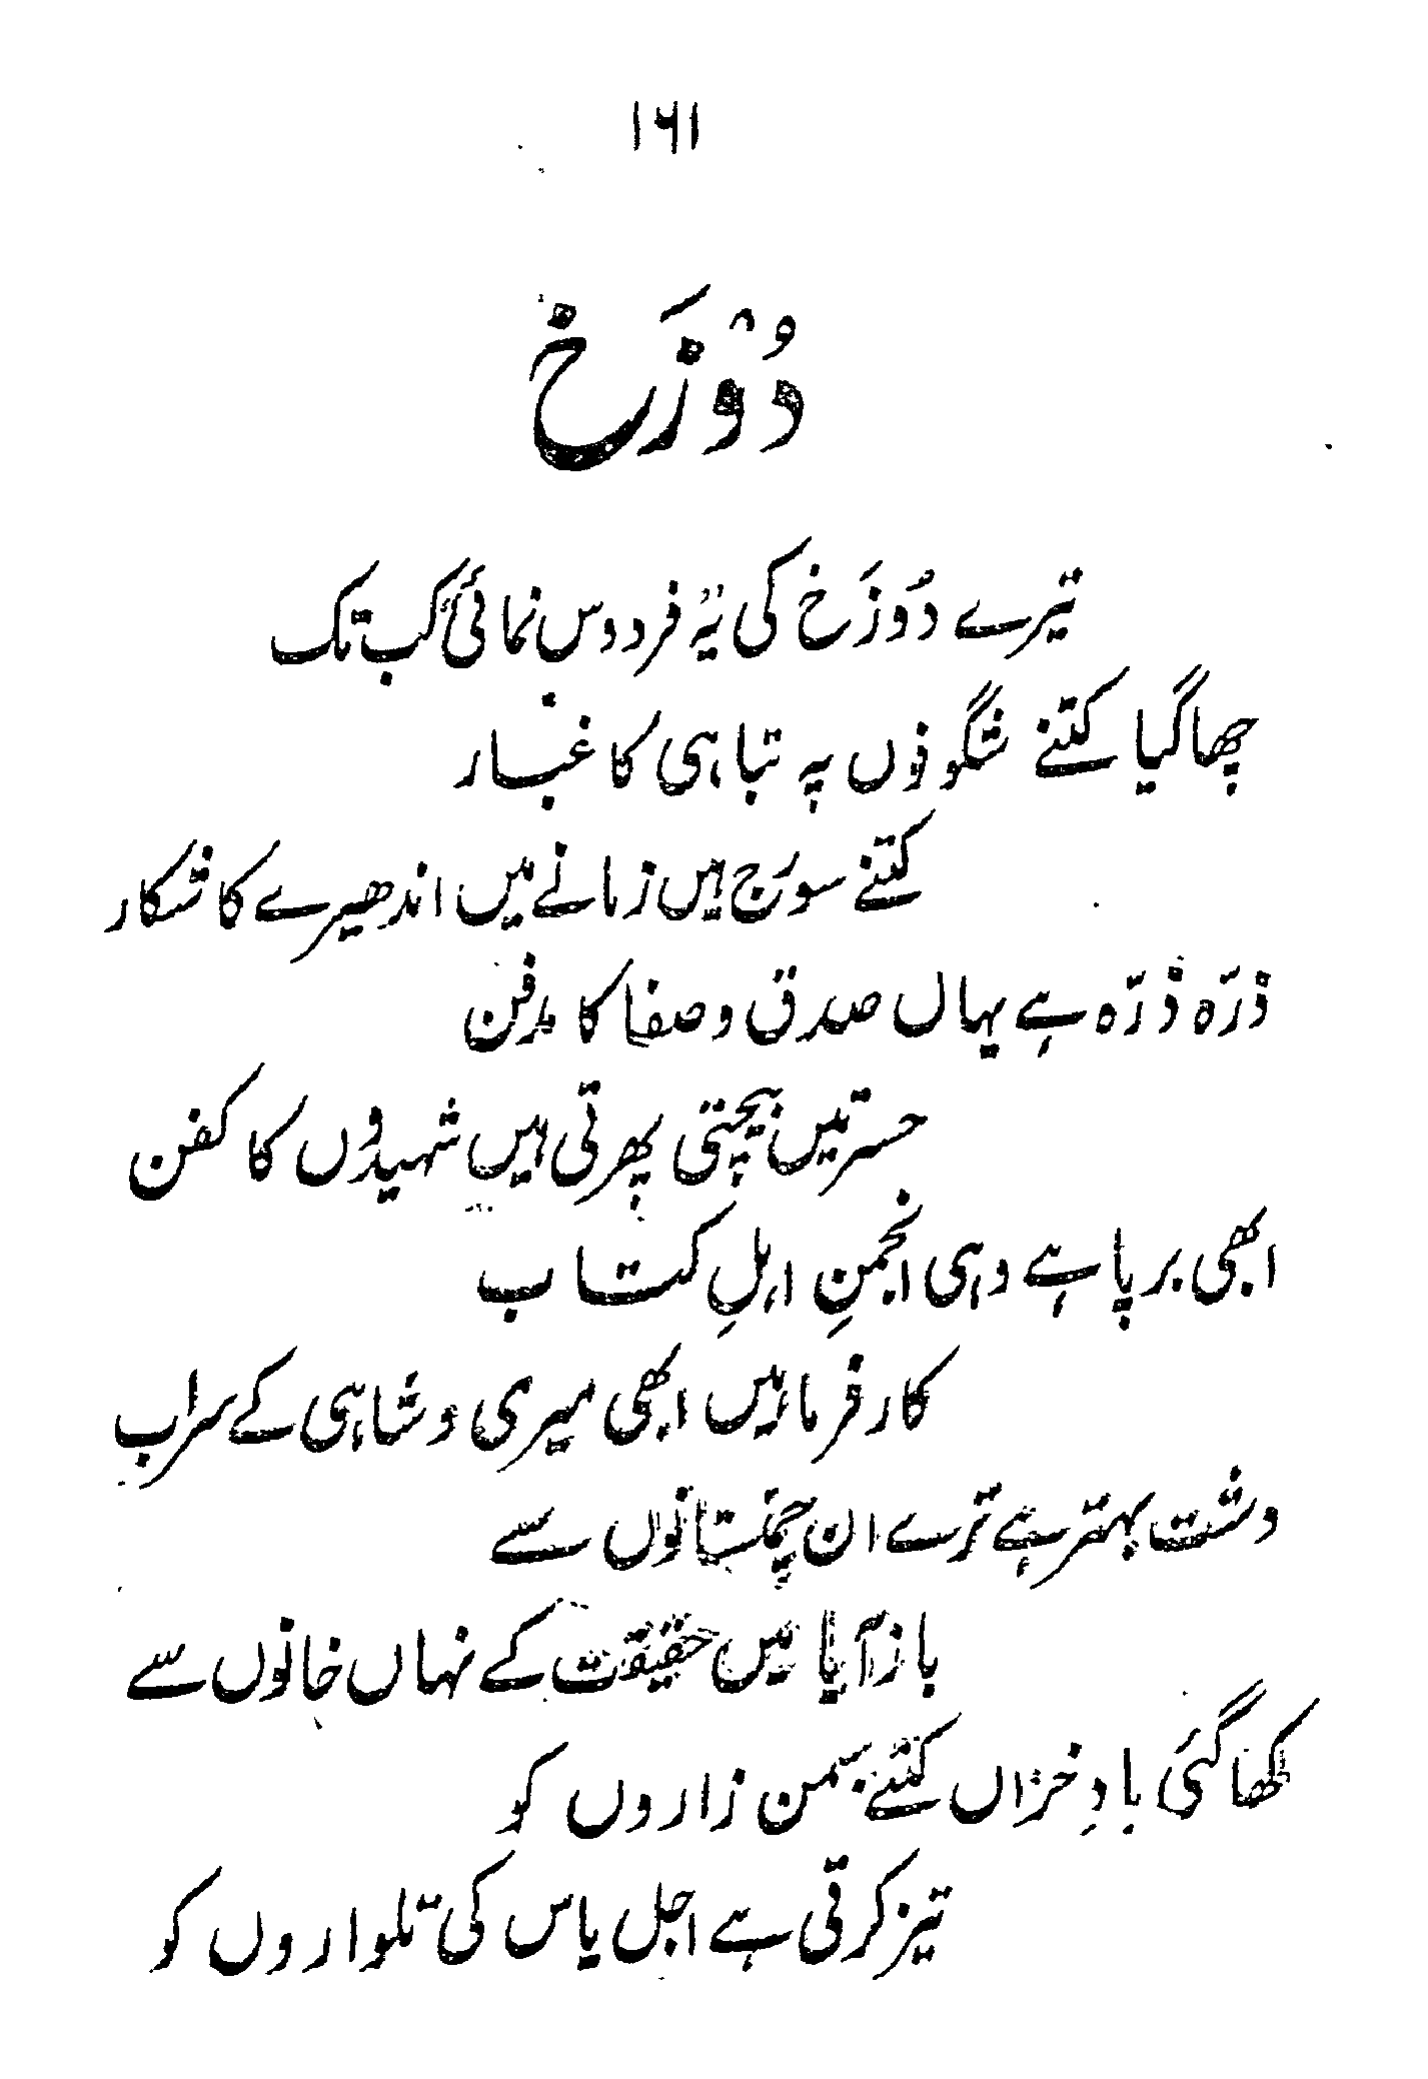 ۱۶۱
دُوزَخ
تیرے دُوزَخ کی یہ فردوس نمائی کب تک
چھا گیا کتنے شگوفوں پہ تباہی کا غبار
کتنے سورَج ہیں زمانے میں اندھیرے کا شکار
ذرّہ ذرّہ ہے یہاں صدق و صفا کا مدفن
حسرتیں بیچتی پھرتی ہیں شہیدوں کا کفن
ابھی برپا ہے وہی انجمنِ اہلِ کتاب
کار فرما ہیں ابھی میری و شاہی کے سراب
دشت بہتر ہے ترے ان چمنستانوں سے
باز آیا میں حقیقت کے نہاں خانوں سے
کھا گئی بادِ خزاں کتنے سمن زاروں کو
تیز کرتی ہے اجل یاس کی تلواروں کو